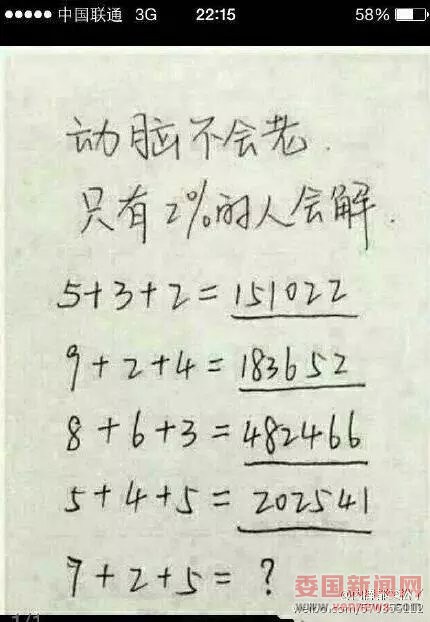 中国联通 3G 22:15 58%
动脑不会老.
只有2%的人会解.
5+3+2=151022
9+2+4=183652
8+6+3=482466
5+4+5=202541
7+2+5=?
委国新闻网